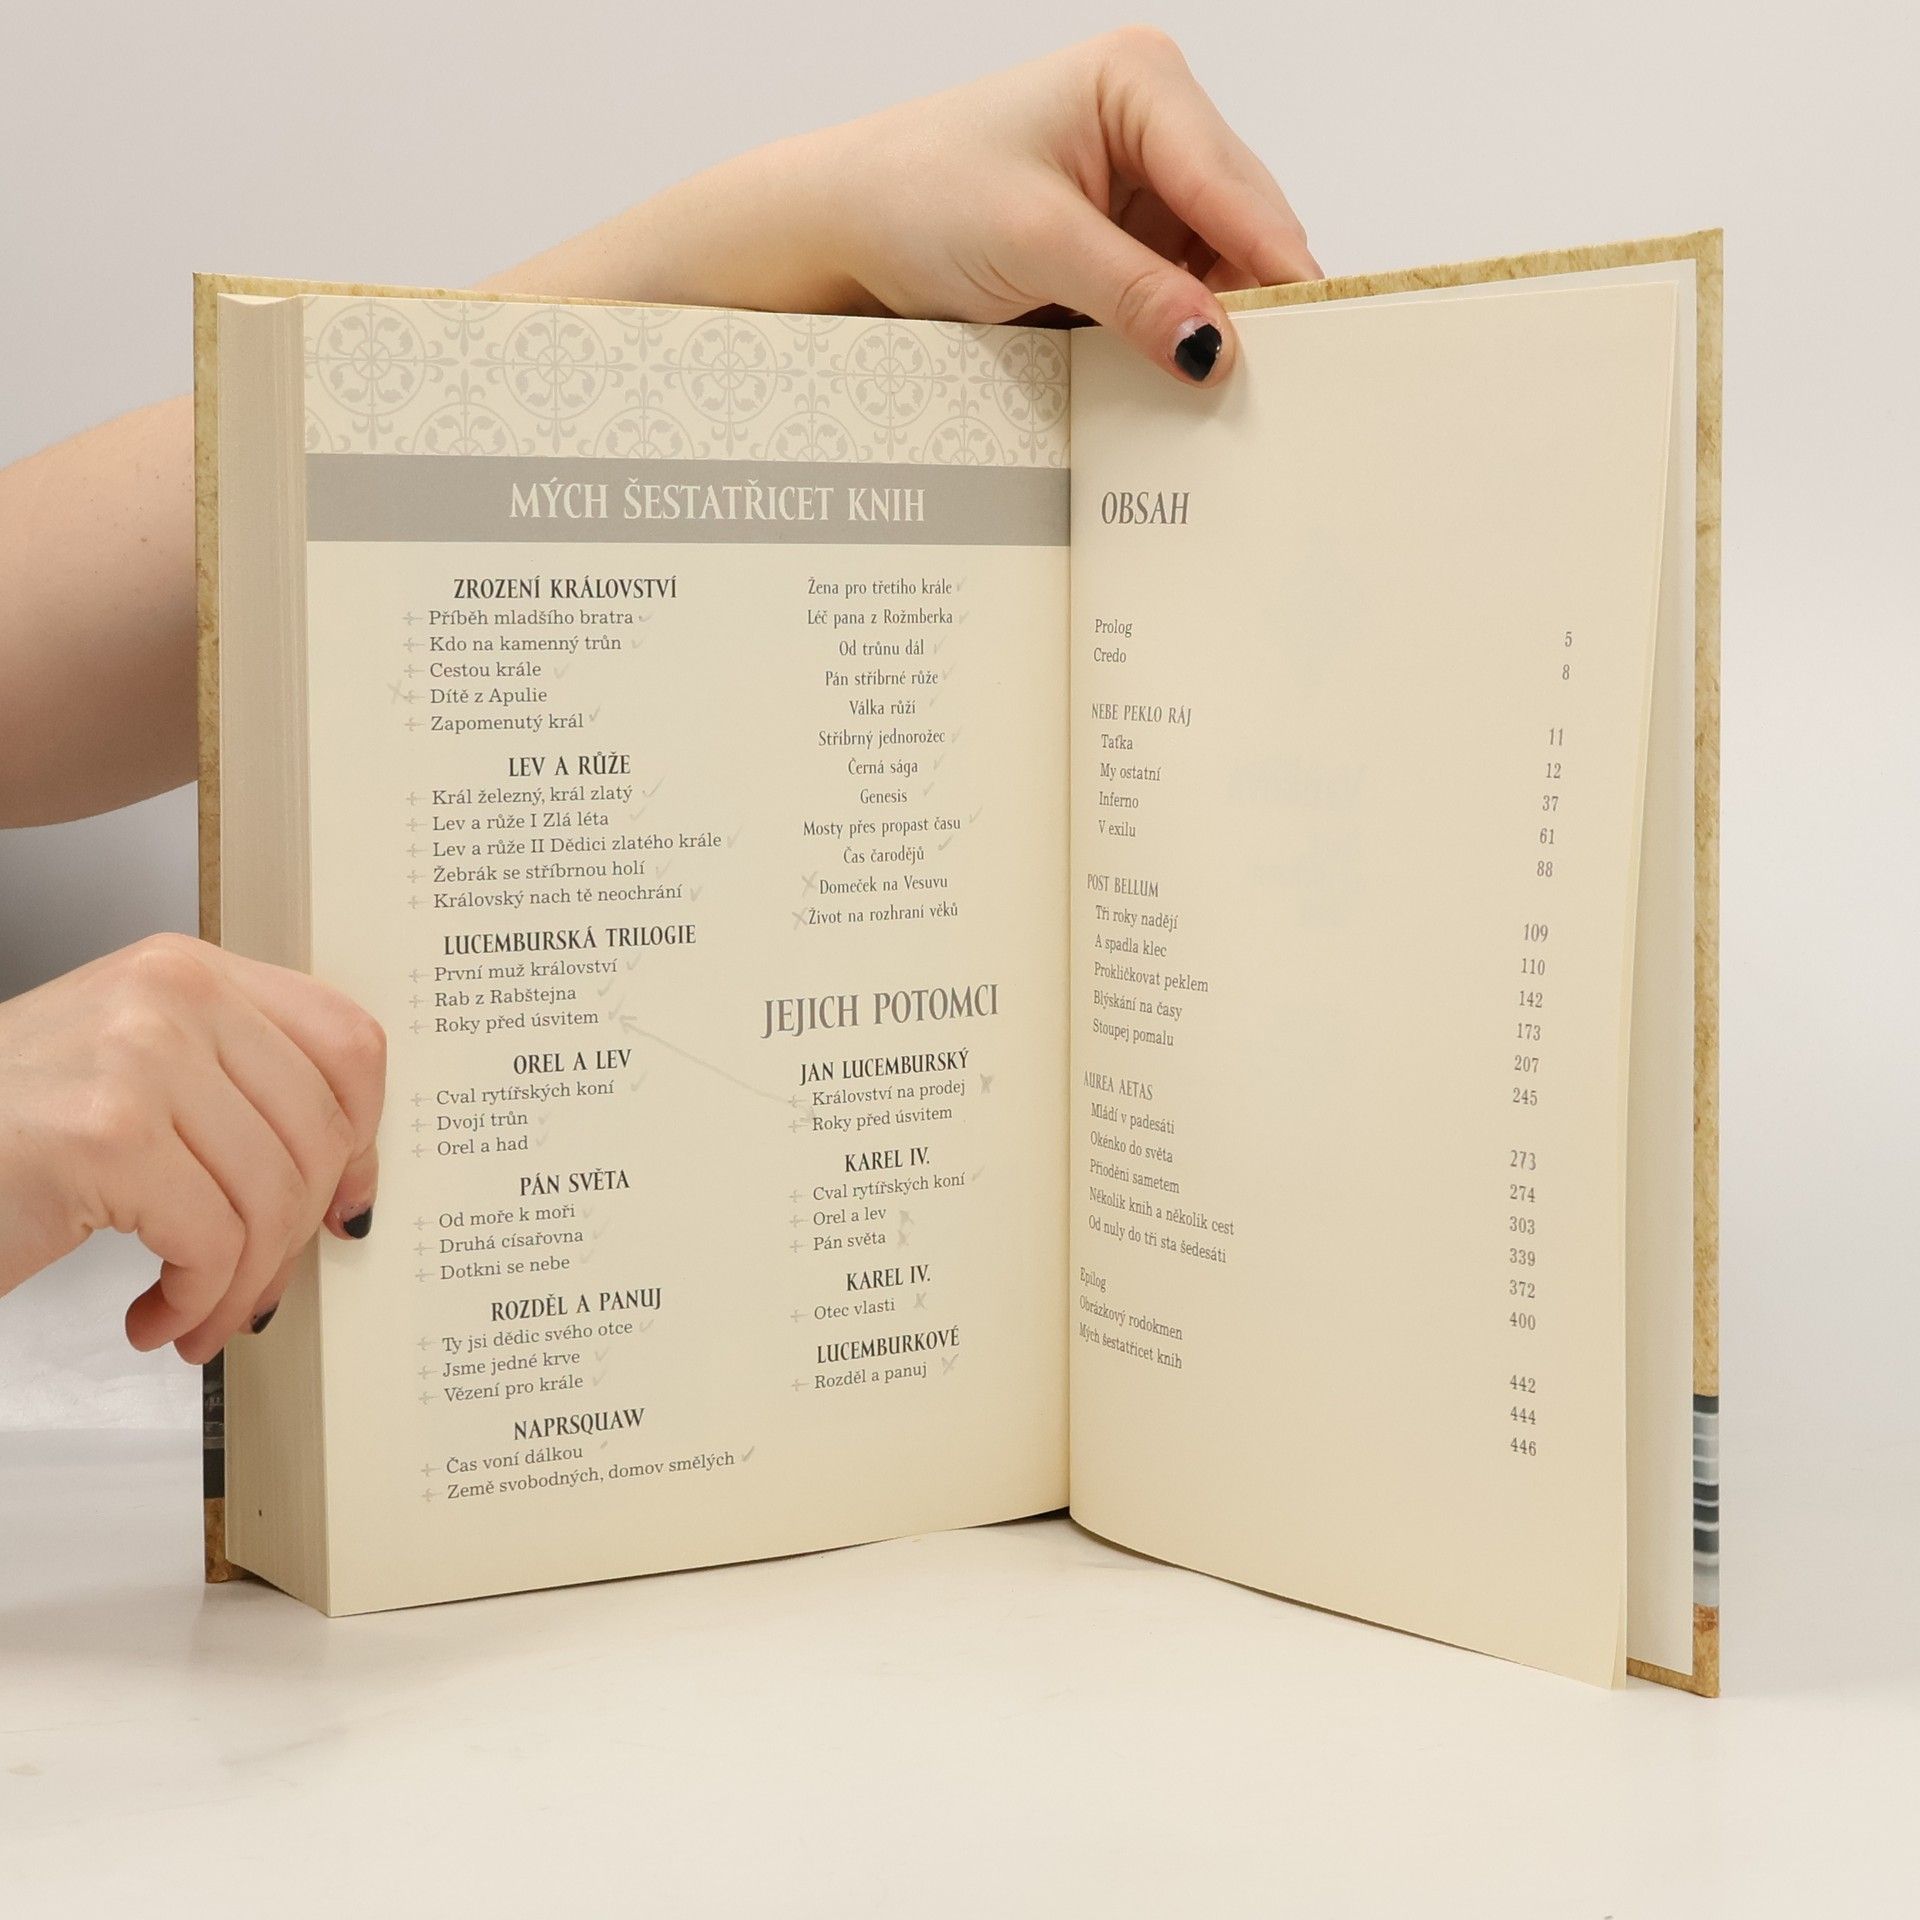 MÝCH ŠESTATŘICET KNIH
ZROZENÍ KRÁLOVSTVÍ
Příběh mladšího bratra
Kdo na kamenný trůn
Cestou krále
Dítě z Apulie
Zapomenutý král
LEV A RŮŽE
Král železný, král zlatý
Lev a růže I Zlá léta
Lev a růže II Dědici zlatého krále
Žebrák se stříbrnou holí
Královský nach tě neochrání
LUCEMBURSKÁ TRILOGIE
První muž království
Rab z Rabštejna
Roky před úsvitem
OREL A LEV
Cval rytířských koní
Dvojí trůn
Orel a had
PÁN SVĚTA
Od moře k moři
Druhá císařovna
Dotkni se nebe
ROZDĚL A PANUJ
Ty jsi dědic svého otce
Jsme jedné krve
Vězení pro krále
NAPRSQUAW
Čas voní dálkou
Země svobodných, domov smělých
Žena pro třetího krále
Léč pana z Rožmberka
Od trůnu dál
Pán stříbrné růže
Válka růží
Stříbrný jednorožec
Černá sága
Genesis
Mosty přes propast času
Čas čarodějů
Domeček na Vesuvu
Život na rozhraní věků
JEJICH POTOMCI
JAN LUCEMBURSKÝ
Království na prodej
Roky před úsvitem
KAREL IV.
Cval rytířských koní
Orel a lev
Pán světa
KAREL IV.
Otec vlasti
LUCEMBURKOVÉ
Rozděl a panuj
OBSAH
Prolog 5
Credo 8
NEBE PEKLO RÁJ 11
Taťka 12
My ostatní 37
Inferno 61
V exilu 88
POST BELLUM 109
Tři roky nadějí 110
A spadla klec 142
Prokličkovat peklem 173
Blýskání na časy 207
Stoupej pomalu 245
AUREA AETAS 273
Mládí v padesáti 274
Okénko do světa 303
Přioděni sametem 339
Několik knih a několik cest 372
Od nuly do tří sta šedesáti 400
Epilog 442
Obrázkový rodokmen 444
Mých šestatřicet knih 446